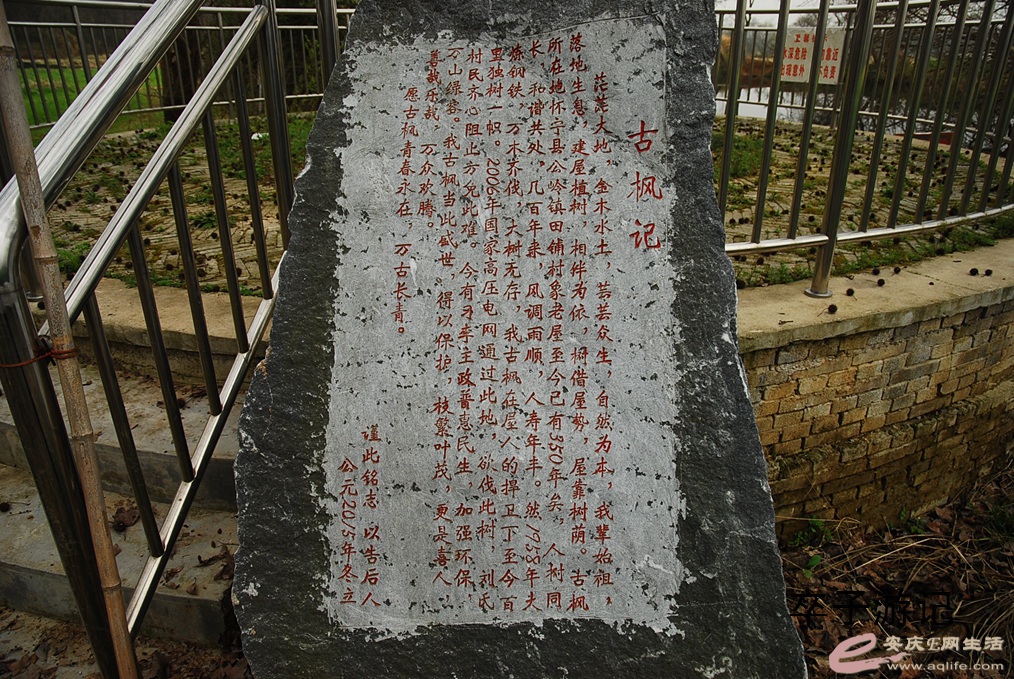 古枫记
茫茫大地，金木水土，芸芸众生，自然为本，我辈始祖，
落地生息，建屋植树，相伴为依，树借屋势，屋靠树荫。古枫
所在地怀宁县公岭镇田铺村象老屋至今已有350年矣，人树同
长，和谐共处，几百年来，风调雨顺，人寿年丰。然1955年大
炼钢铁，万木齐伐，大树无存，我古枫在屋人的捍卫下至今百
里独树一帜。2006年国家高压电网通过此地，欲伐此树，刘氏
村民齐心阻止方免此难。今有习李主政普惠民生，加强环保，
万山绿容。我古枫当此盛世，得以保护，枝繁叶茂，更是喜人
善哉乐哉，万众欢腾。
愿古枫青春永在，万古长青。
谨此铭志 以告后人
公元2015年冬立
水深危险 靠近
出现意外 不负责
在于游记
安庆E网生活
www.aqlife.com